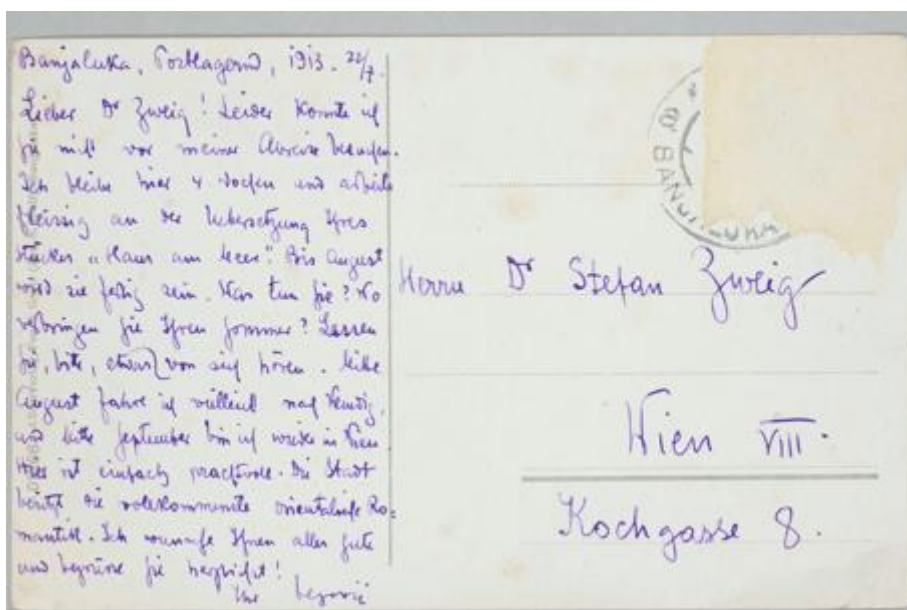 Banjaluka, Postlagernd, 1913. 22/7.
Lieber Dr Zweig! Leider konnte ich
Sie nicht vor meiner Abreise besuchen.
Ich bleibe hier 4 Wochen und arbeite
fleissig an der Uebersetzung Ihres
Stückes „Haus am Meer“. Bis August
wird sie fertig sein. Was tun Sie? Wo
verbringen Sie Ihren Sommer? Lassen
Sie, bitte, etwas von sich hören. Mitte
August fahre ich vielleicht nach Venedig,
und Mitte September bin ich wieder in Wien
Hier ist einfach prachtvoll. Die Stadt
besitzt die vollkommenste orientalische Ro=
mantik. Ich wünsche Ihnen alles gute
und begrüsse Sie herzlichst!
Ihr Begović
BANJALUKA
Herrn Dr Stefan Zweig
Wien VIII.
Kochgasse 8.